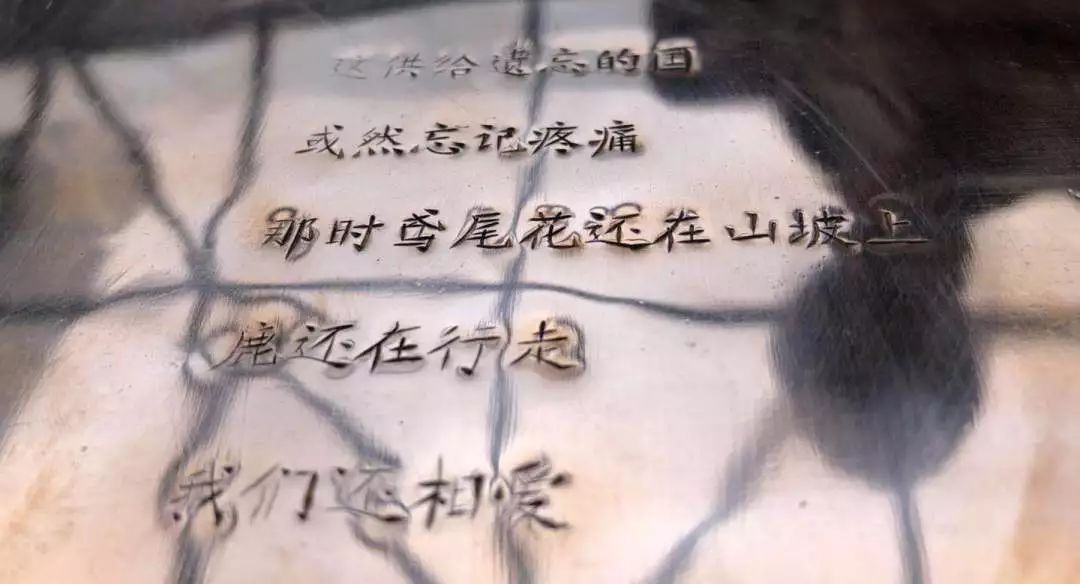 这供给遗忘的国
或然忘记疼痛
那时鸢尾花还在山坡上
鹿还在行走
我们还相爱